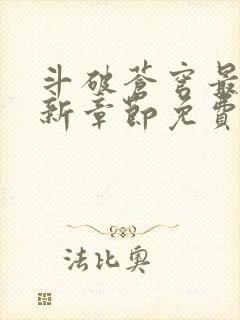 斗破苍穹最
新章節免費
法比奥